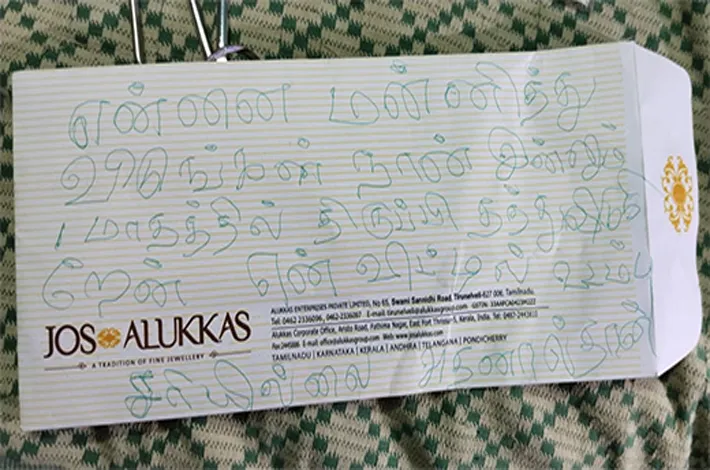 என்னை மன்னித்து
விடுங்கள் நான் இன்னும்
1 மாதத்தில் திருப்பி தந்துவிடு
றேன் என் வீட்டில் உடம்பு
JOS ALUKKAS
A TRADITION OF FINE JEWELLERY
ALUKKAS ENTERPRISES PRIVATE LIMITED, No 65, Swami Sannidhi Road, Tirunelveli-627 006, Tamilnadu.
Tel: 0462 2336096, 0462-2336087. E-mail: tirunelveli@alukkasgroup.com
Alukkas Corporate Office, Arista Road, Fathima Nagar, East Fort, Thrissur-5, Kerala, India. Tel: 0487-2443610
Fax:2445686 E-mail: office@alukkasgroup.com Web: www.josalukkas.com
TAMILNADU | KARNATAKA | KERALA | ANDHRA | TELANGANA | PONDICHERRY
சரியில்லை அதனால்தான்